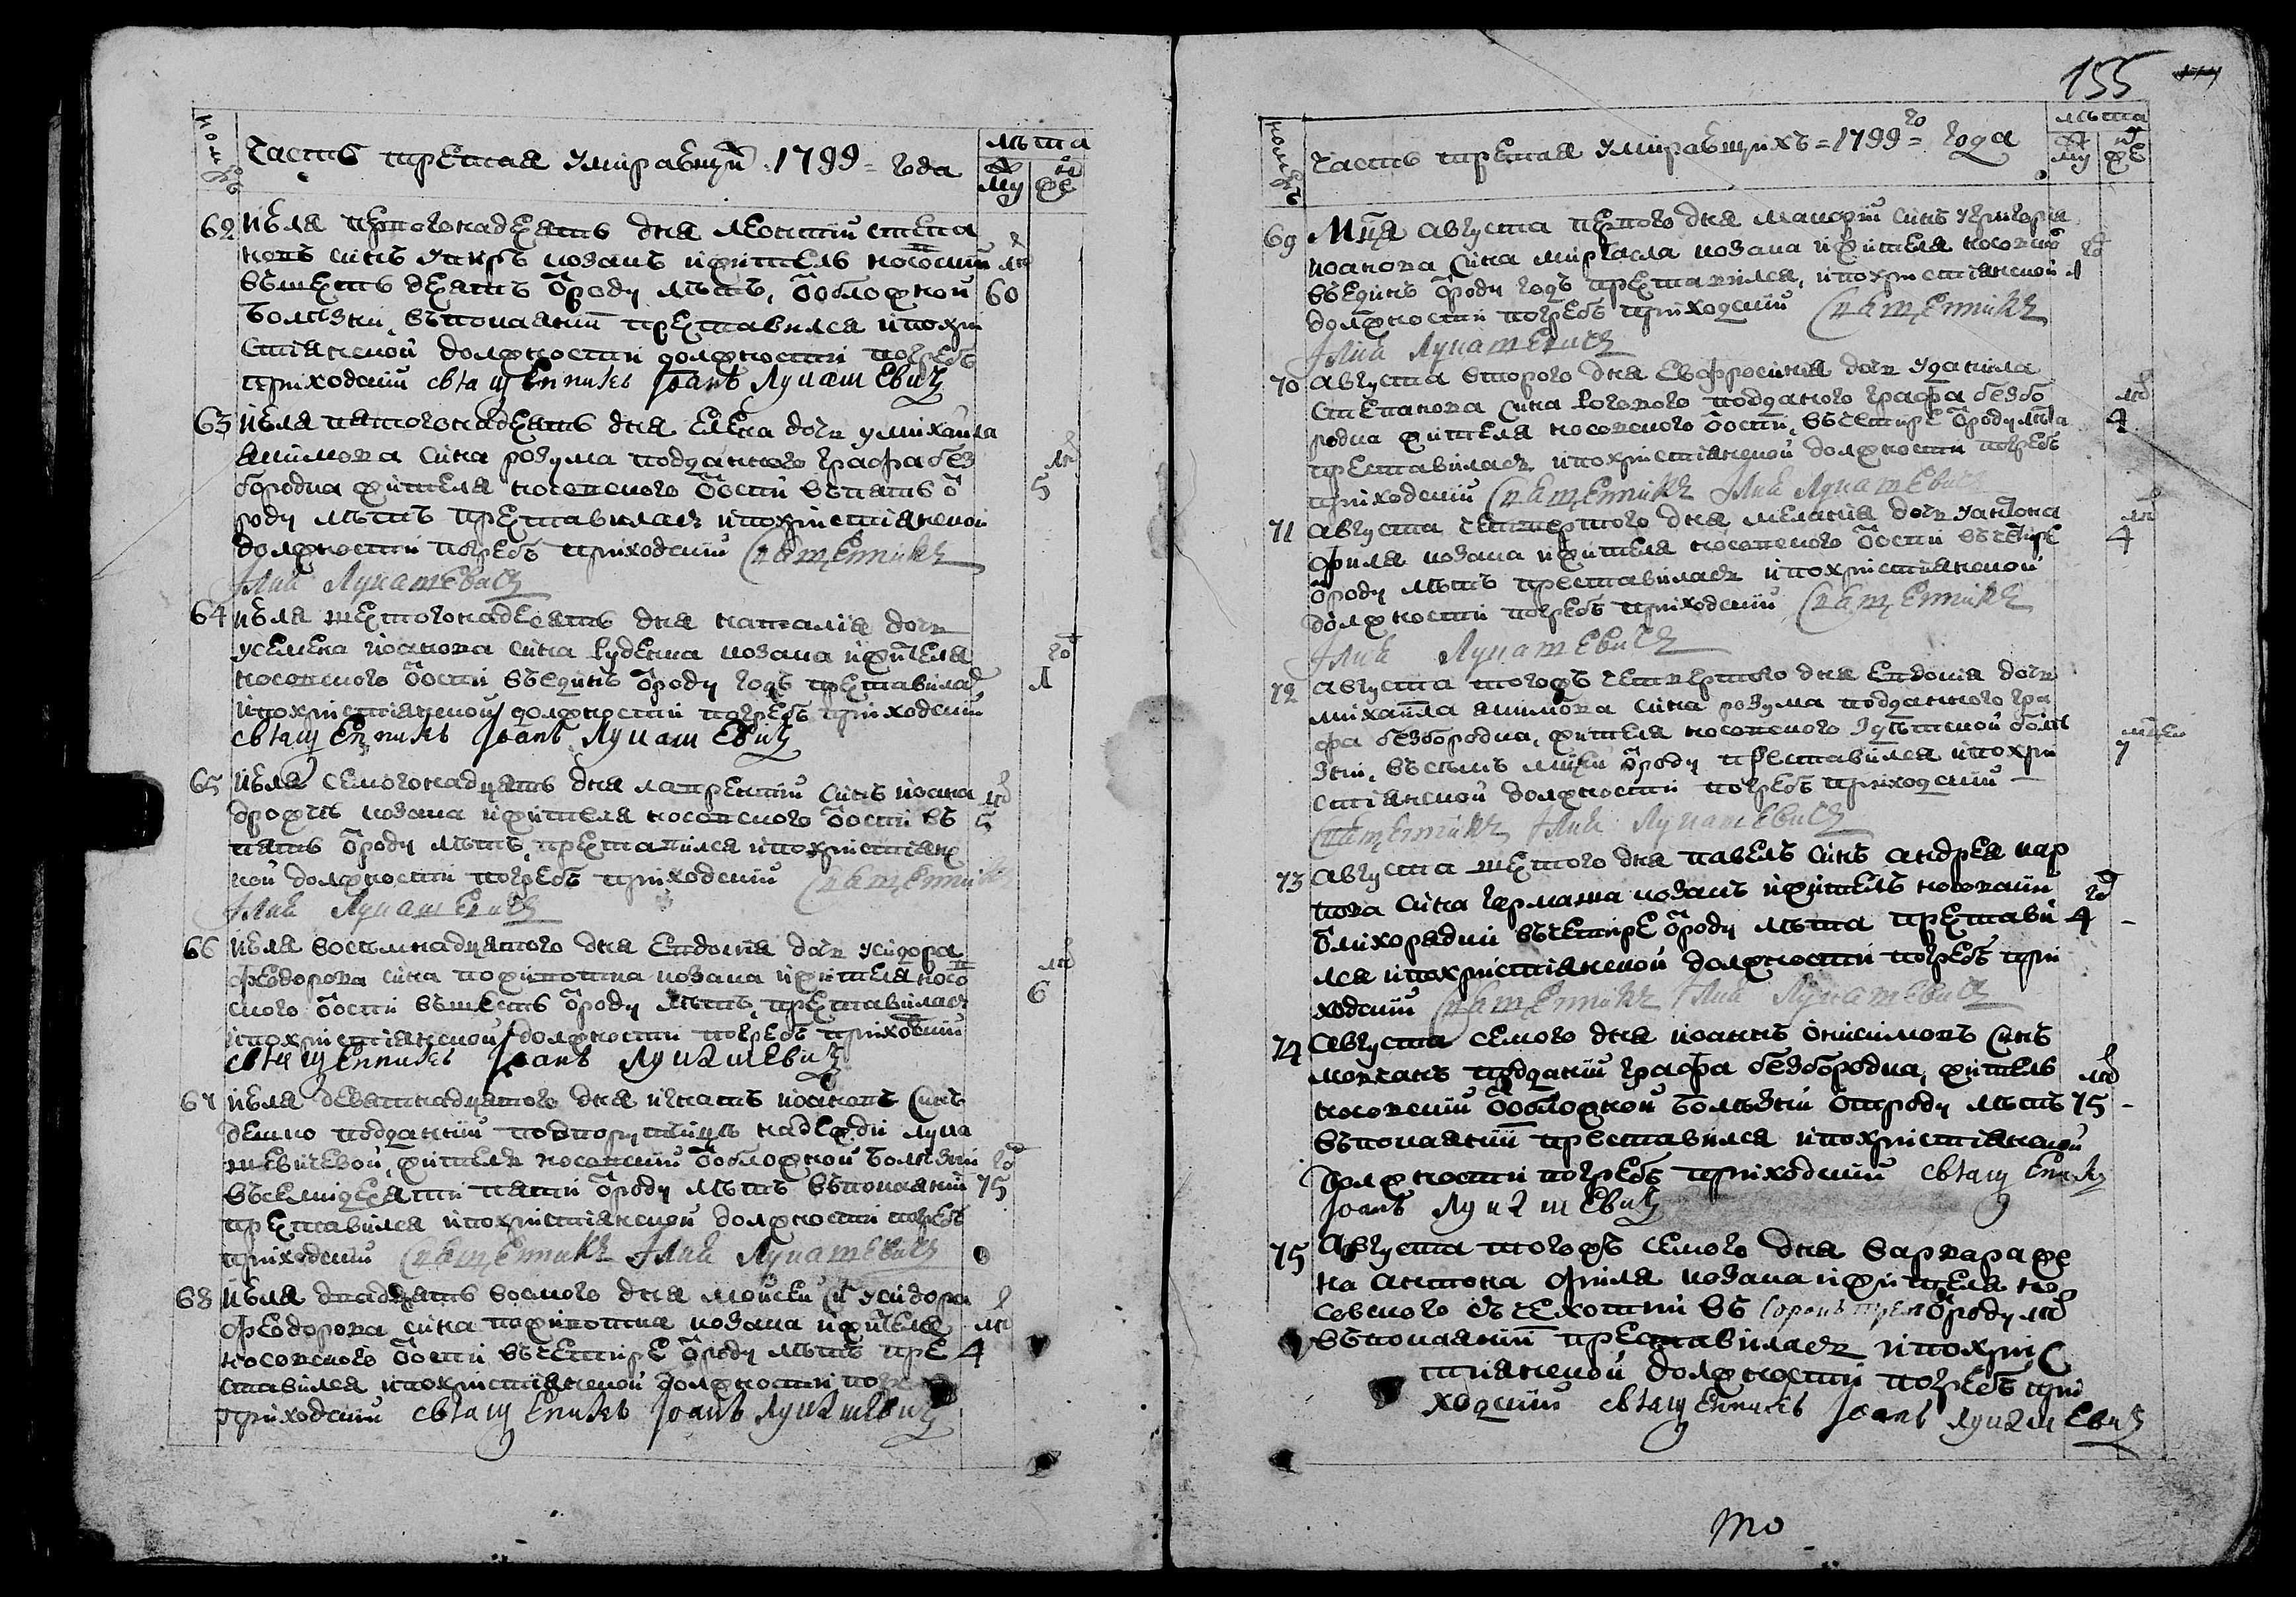 155
Часть третая умравшы 1799 = года
лѣта
му же
62 июля первогонадцять дня леонтии степа
новъ синъ козакъ ижитель носовски
въшестьдесятъ ѿроду лѣтъ,
60
болѣзни въпокаянии преставился ипохри
стиянской должности должности погребъ
приходскии священникъ Іоанъ Лукашевичъ
63 июля пятогонадцять дня елена дочь умихаила
якимова сина розума подданного графа без
бородка жителя носовского ѿоспи въпять ѿ
5
роду лѣтъ преставилась ипохристиянской
должности погребъ приходскии священникъ
Іоанъ Лукашевичъ
64 июля шестогонадесять дня наталия дочь
усемена иоанова сина руденка козака ижителя
носовского ѿоспи въединъ ѿроду годъ преставилас
1
ипохристиянской должности погребъ приходскии
священникъ Іоанъ Лукашевичъ
65 июля семогонадцять дня лаврентии синъ иоана
козака ижителя носовского ѿоспи въ
5
пять ѿроду лѣтъ преставился ипохристиянс
кой должности погребъ приходскии священникъ
Іоанъ Лукашевичъ
66 июля восьмнадцатого дня евдокия дочь уисидора
феодорова сина козака ижителя носо
вского ѿоспи въшесть ѿроду лѣтъ преставилась
6
ипохристиянской должности погребъ приходскии
священникъ Іоанъ Лукашевичъ
67 июля девятнадцатого дня игнатъ иоановъ синъ
подданнии надежди лука
шевичевой, житель носовскии ѿобложной болѣзни
въсемидесяти пяти ѿроду лѣтъ въпокаянии
75
преставился ипохристиянской должности погребъ
приходскии священникъ Іоанъ Лукашевичъ
68 июля двадцять восмого дня моисеи синъ уисидора
феодорова сина козака ижителя
носовского ѿоспи въчетире ѿроду лѣтъ пре
4
ставился ипохристиянской должности
приходскии священникъ Іоанъ Лукашевичъ
Часть третая умравшихъ = 1799 = го года
лѣта
му же
69 Мця августа первого дня синъ угригория
иоанова сина козака ижителя носовско
въединъ ѿроду годъ преставился, ипохристиянской
1
должности погребъ приходскии священникъ
Іоанъ Лукашевичъ
70 августа второго дня евфросиния дочь уданила
степанова сина подданого графа безбо
родка жителя носовского ѿоспи, въчетире ѿроду лѣта
4
преставилась ипохристиянской должности погребъ
приходскии священникъ Іоанъ Лукашевичъ
71 августа четвертого дня мелания дочь уантона
филя козака ижителя носовского ѿоспи въчетире
4
ѿроду лѣтъ преставилась ипохристиянской
должности погребъ приходскии священникъ
Іоанъ Лукашевичъ
72 августа тогожъ четвертого дня евдокия дочь
михаила якимова сина розума подданного гра
фа безбородка, жителя носовского
зни, въсемъ мцей ѿроду преставился ипохри
7
стиянской должности погребъ приходскии
священникъ Іоанъ Лукашевичъ
73 августа шестого дня павелъ синъ андрея кар
пова сина козакъ ижитель носовскии
ѿлихорадки въчетире ѿроду лѣта престави
4
лся ипохристиянской должности погребъ при
ходскии священникъ Іоанъ Лукашевичъ
74 августа семого дня иоаннъ онисимовъ синъ
мовчанъ поддании графа безбородка, житель
носовскии ѿобложной болѣзни ѿтроду лѣтъ 75
въпокаянии преставился ипохристиянской
должности погребъ приходскии священникъ
Іоанъ Лукашевичъ
75 августа тогожъ семого дня варвара же
на антона филя козака ижителя но
совского ѿчехотки въ сорокъ ѿроду лѣт
въпокаянии преставилась ипохрис
тиянской должности погребъ при
ходскии священникъ Іоанъ Лукашевичъ
то